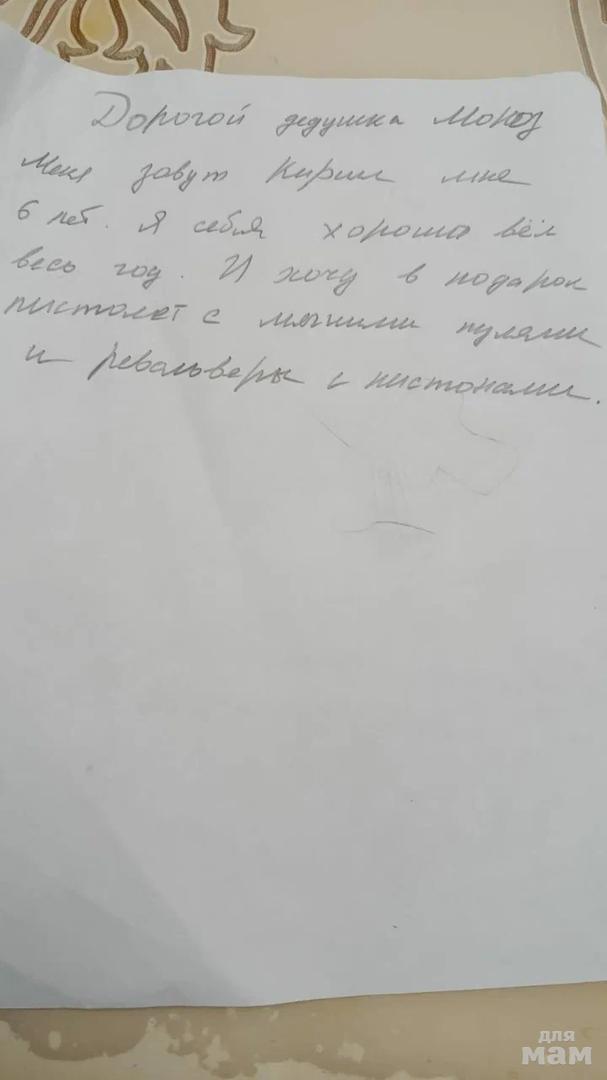 Дорогой дедушка Мороз
Меня зовут Кирилл мне
6 лет. Я себя хорошо вёл
весь год. И хочу в подарок
пистолет с мягкими пулями
и револьверы с пистонами.
для
мам